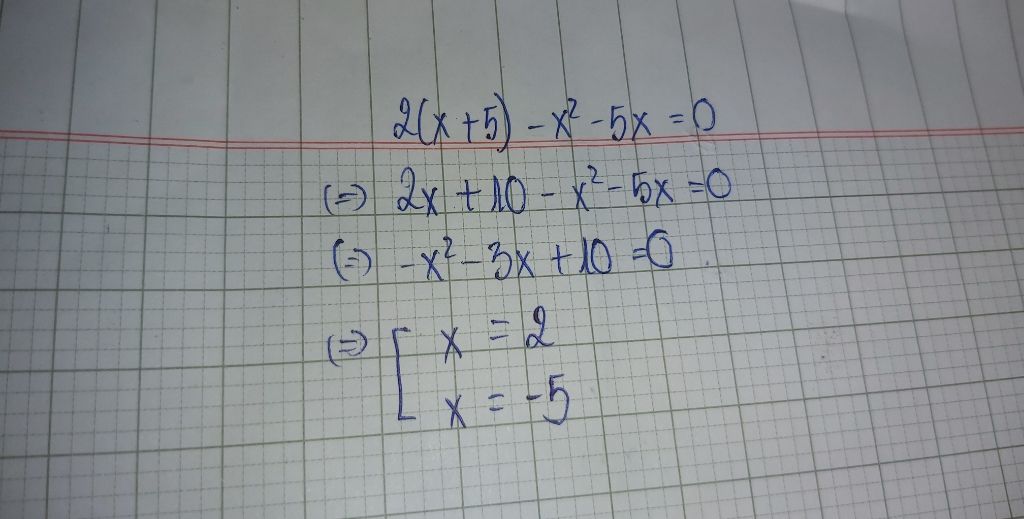 2(x+5) - x² - 5x = 0
(=) 2x + 10 - x² - 5x = 0
(=) -x² - 3x + 10 = 0
(=) [ x = 2
x = -5